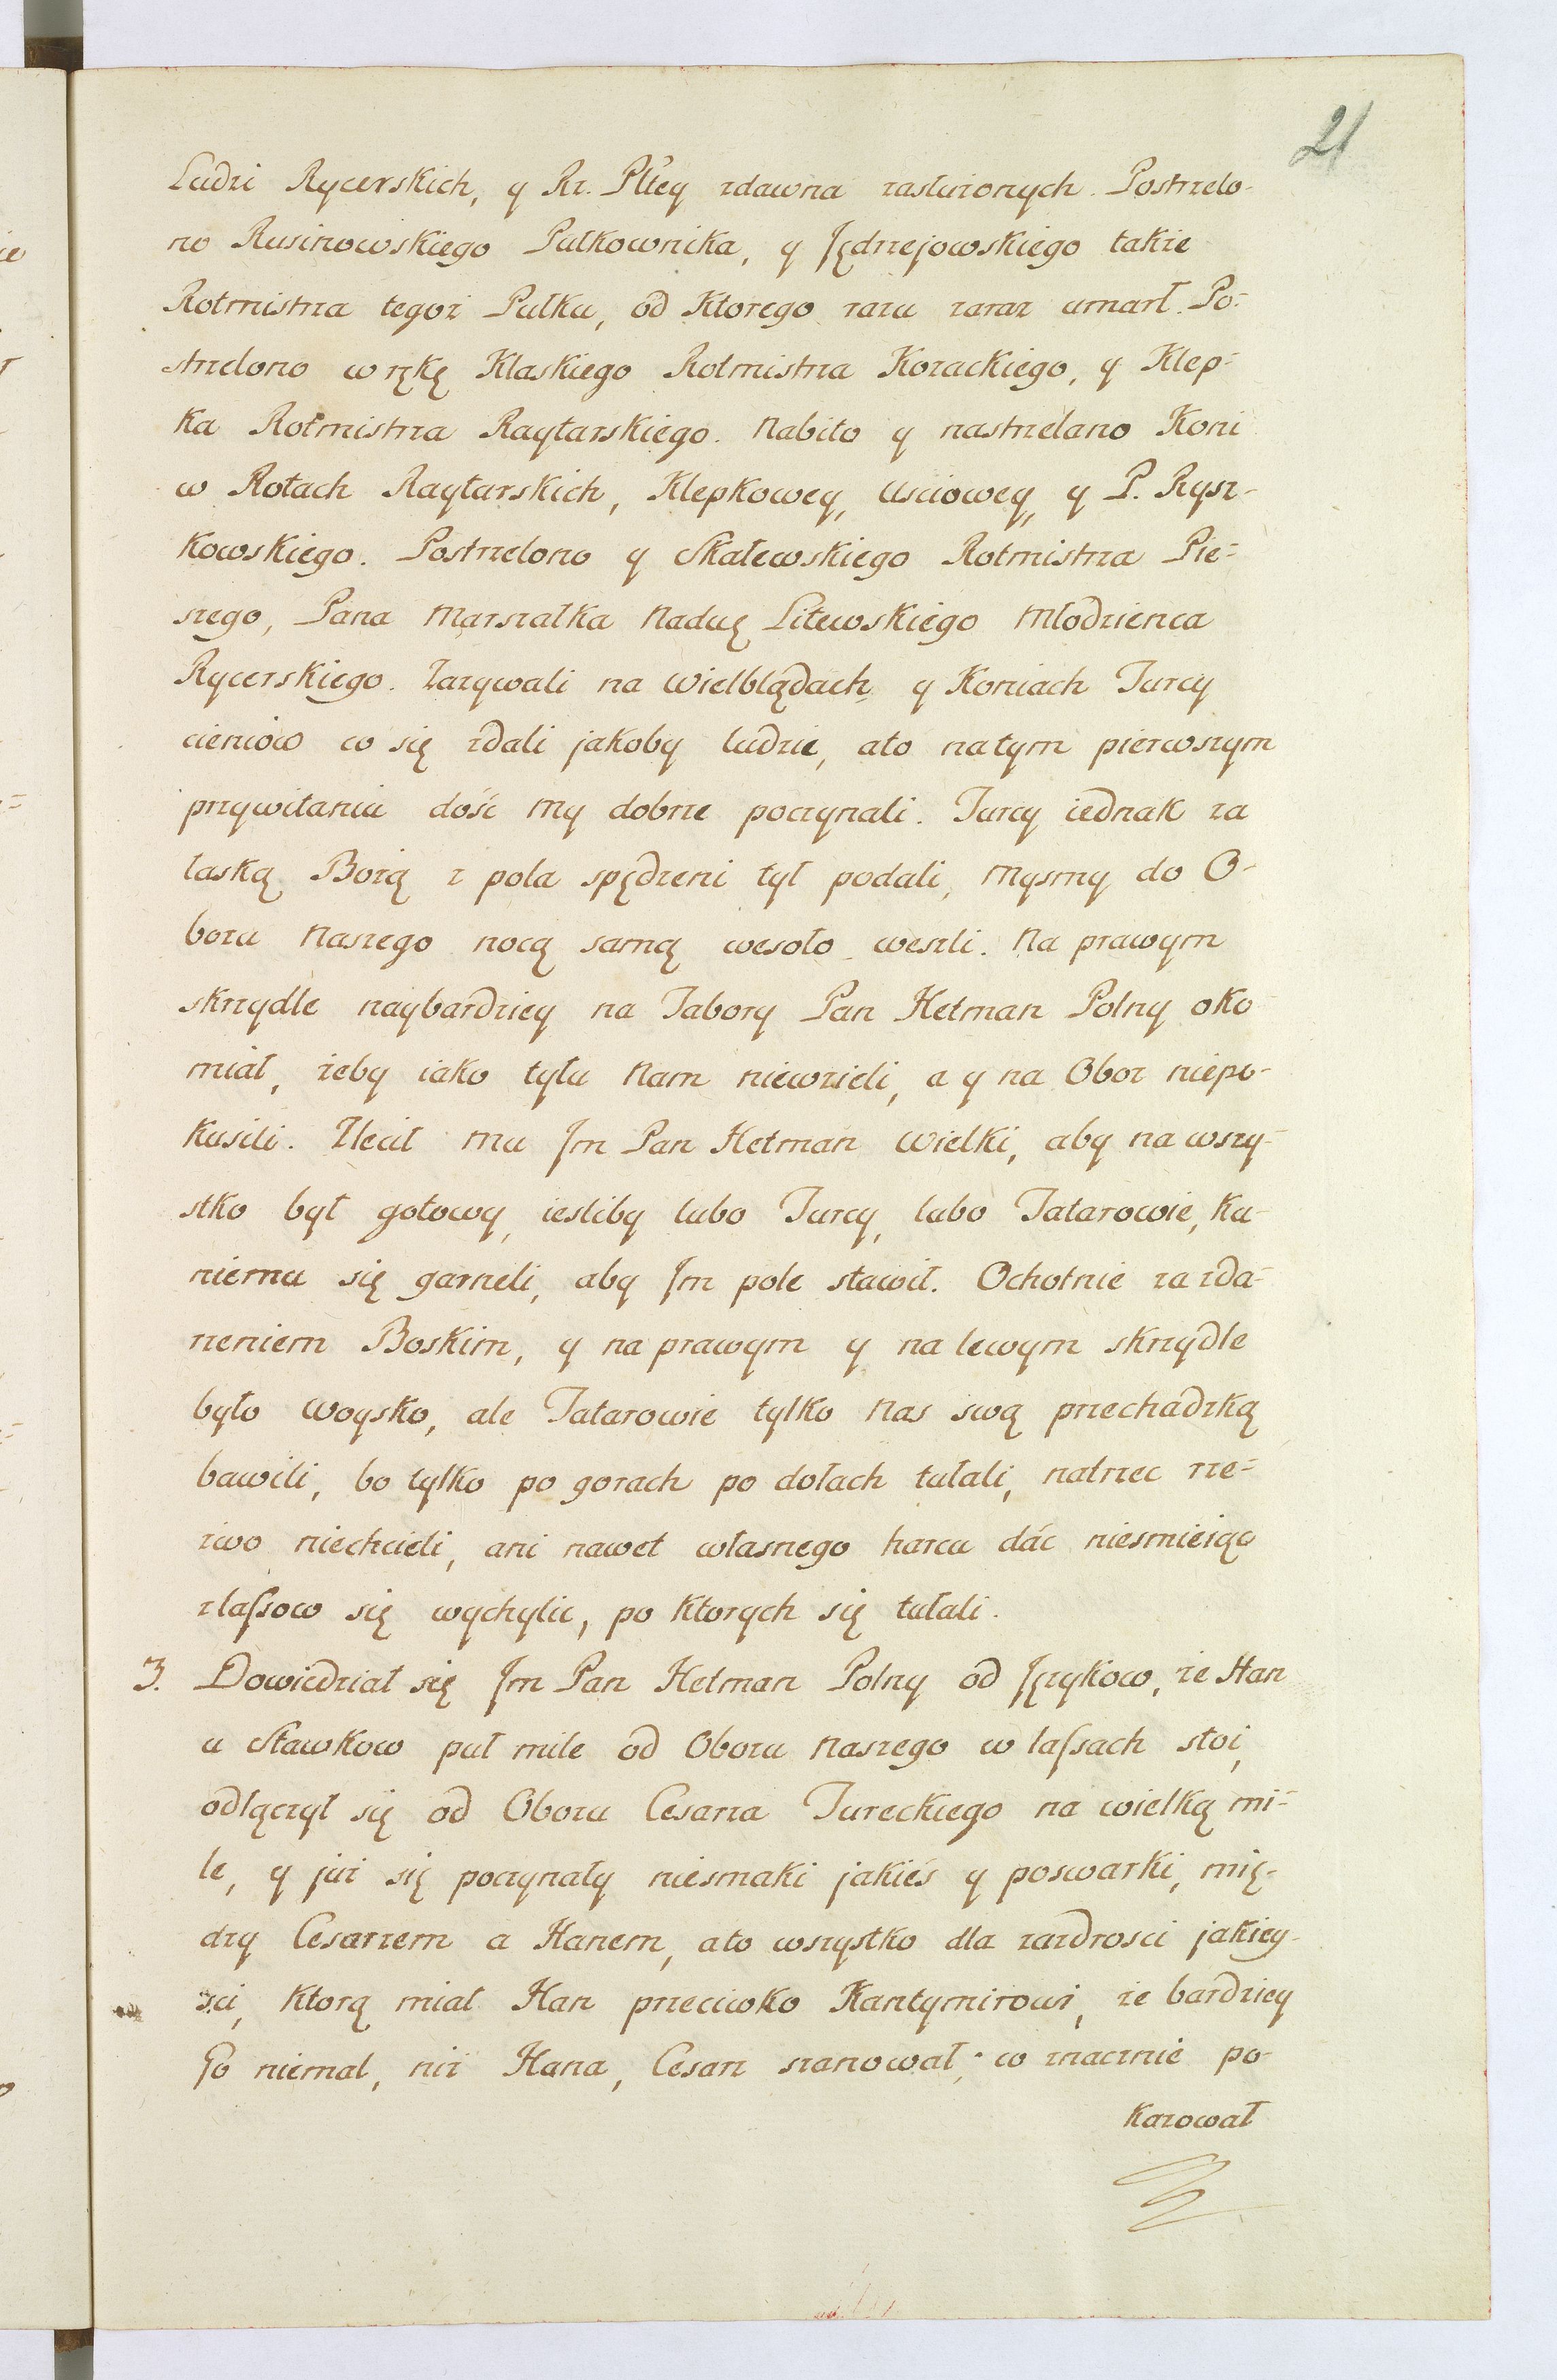 21
Ludzi Rycerskich, y Rz. Pltey zdawna zasłużonych. Postrzelo-
no Rusinowskiego Pułkownika, y Jędrzejowskiego także
Rotmistrza tegoż Pułku, od Ktorego razu zaraz umarł. Po=
strzelono w rękę Klaskiego Rotmistrza Kozackiego, y Klep=
ka Rotmistrza Raytarskiego. Nabito y nastrzelano Koni
w Rotach Raytarskich, Klepkowey, Usciowey, y P. Rysz-
kowskiego. Postrzelono y Skałewskiego Rotmistrza Pie=
szego, Pana Marszałka Nadwę Litewskiego Młodzienca
Rycerskiego. Zazywali na Wielblądach y Koniach Turcy
cieniów co się zdali jakoby ludzie, ato natym pierwszym
przywitaniu dość My dobrze poczynali. Turcy iednak za
łaską Bożą z pola spędzeni tył podali, Mysmy do O-
bozu Naszego nocą samą wesoło weszli. Na prawym
skrzydle naybardziey na Tabory Pan Hetman Polny oko
miał, żeby iako tyłu Nam niewzieli, a y na Oboz niepo-
kusili. Zlecił Mu Jm Pan Hetman Wielki, aby na wszy=
stko był gotowy, iesliby lubo Turcy, lubo Tatarowie, ku-
niemu się garneli, aby Jm pole stawił. Ochotnie za zda=
rzeniem Boskim, y na prawym y na lewym skrzydle
było Woysko, ale Tatarowie tylko Nas swą przechadzką
bawili, bo tylko po gorach po dołach tułali, natrzec rze=
zwo niechcieli, ani nawet własnego harcu dać niesmieiąc
zlassow się wychylic, po ktorych się tułali.
3. Dowiedział się Jm Pan Hetman Polny od Językow, że Han
u Stawkow puł mile od Obozu Naszego w lassach stoi,
odłączył się od Obozu Cesarza Tureckiego na wielką mi=
le, y już się poczynały niesmaki jakieś y poswarki, mię-
dzy Cesarzem a Hanem, ato wszystko dla zazdrosci jakiey-
sci, Ktorą miał Han przeciwko Kantymirowi, że bardziey
Go niemal, niż Hana, Cesarz szanował, co znacznie po-
kazował